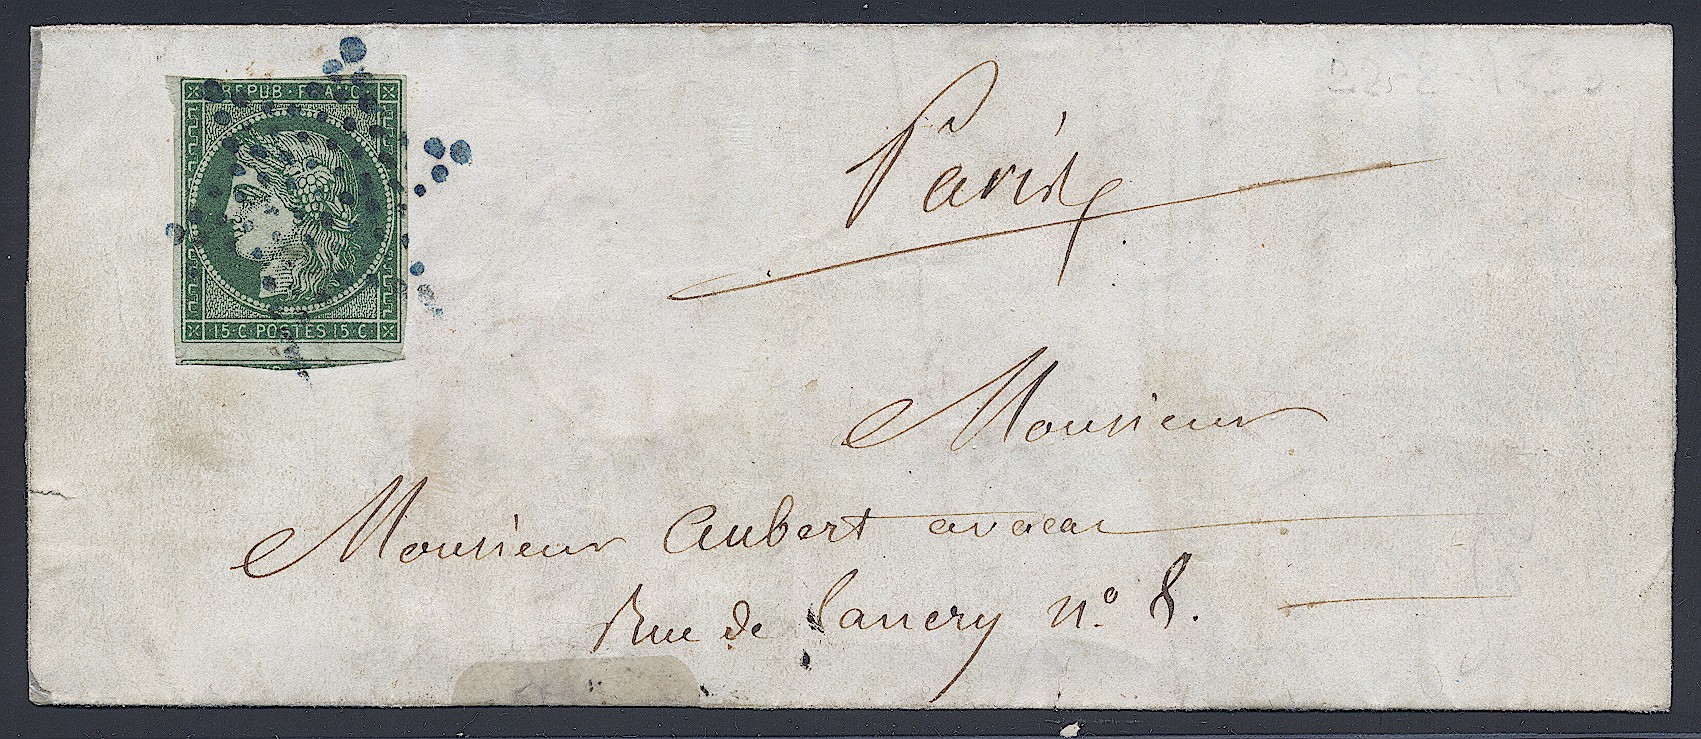 REPUB · FRANC ·
15 · C · POSTES 15 · C
Paris
Monsieur
Monsieur Aubert avocat
Rue de Lancry n° 8.